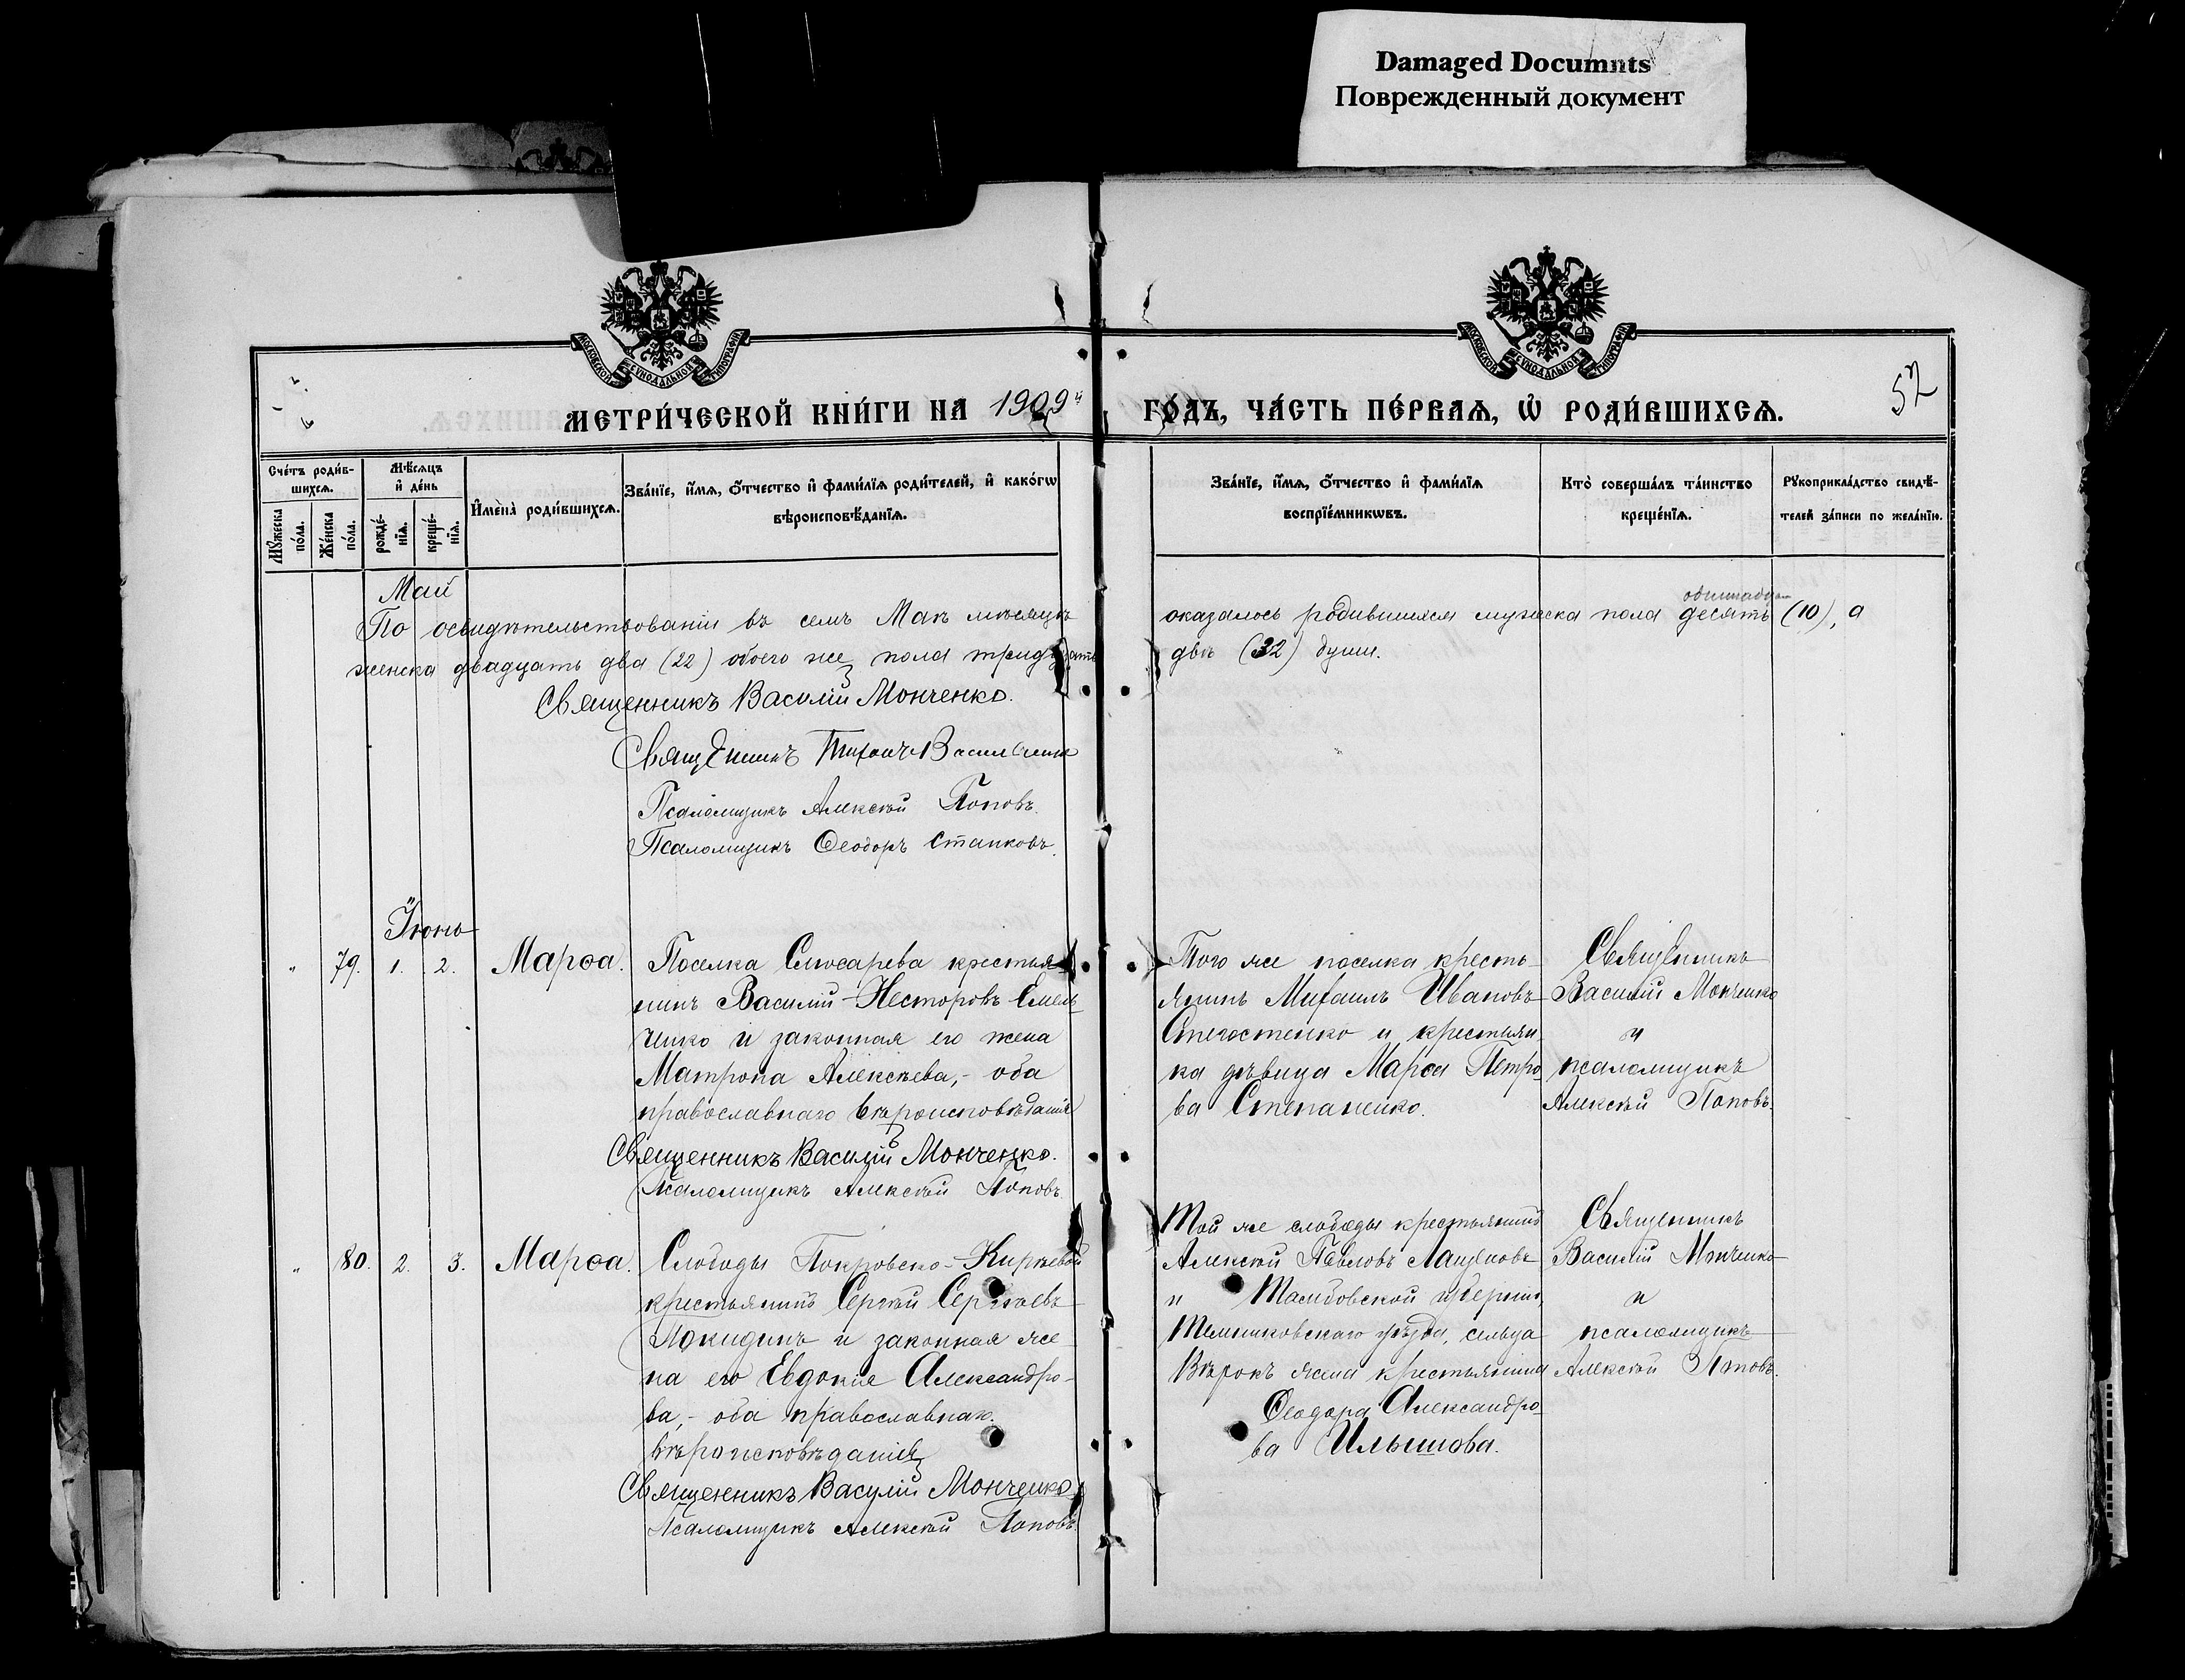 Damaged Documnts
Поврежденный документ
МОСКОВСКОЙ СѴНОДАЛЬНОЙ ТИПОГРАФІИ
МОСКОВСКОЙ СѴНОДАЛЬНОЙ ТИПОГРАФІИ
МЕТРИ́ЧЕСКОЙ КНИ́ГИ НА 1909й ГО́ДЪ, ЧА́СТЬ ПЕ́РВАѦ, Ѡ҆ РОДИ́ВШИХСѦ.
52
Сче́тъ роди́в-
шихсѧ.
Мꙋ́жеска по́ла.
Же́нска по́ла.
Мѣ́сѧцъ
и҆ де́нь
рожде́-
нїѧ.
креще́-
нїѧ.
И҆мена̀ роди́вшихсѧ.
Зва́нїе, и҆́мѧ, ѻ҆́тчество и҆ фами́лїѧ роди́телей, и҆ како́гѡ
вѣроисповѣ́данїѧ.
Зва́нїе, и҆́мѧ, ѻ҆́тчество и҆ фами́лїѧ
воспрїе́мникѡвъ.
Кто̀ соверша́лъ та́инство
креще́нїѧ.
Рꙋкоприкла́дство свидѣ́-
телей за́писи по жела́нїю.
Май
По освидѣтельствованіи въ семъ Маѣ мѣсяцѣ оказалось родившихся мужеска пола десять (10), а
женска двадцать два (22) обоего же пола тридцать двѣ (32) души.
Священникъ Василій Монченко.
Священникъ Тихонъ
Псаломщикъ Алексѣй Поповъ.
Псаломщикъ Ѳеодоръ Станковъ.
Іюнь
" 79. 1. 2. Марѳа.
Поселка Слюсарева крестья-
нинъ Василій Несторовъ Емель-
ченко и законная его жена
Матрона Алексѣева,- оба
православнаго вѣроисповѣданія
Священникъ Василій Монченко.
Псаломщикъ Алексѣй Поповъ.
Того же поселка кресть-
янинъ Михаилъ Ивановъ
и крестьян-
ка дѣвица Марѳа Петро-
ва Степаненко.
Священникъ
Василій Монченко
и
псаломщикъ
Алексѣй Поповъ.
" 80. 2. 3. Марѳа.
Слободы Покровско-Кирѣевой
крестьянинъ Сергѣй Сергѣевъ
Локидинъ и законная же-
на его Евдокія Александро-
ва,- оба православнаг.
вѣроисповѣданія
Священникъ Василій Монченко
Псаломщикъ Алексѣй Поповъ.
Той же слободы крестьянинъ
Алексѣй Павловъ Лащеновъ
и Тамбовской губерніи,
Темниковскаго уѣзда, сельца
Вѣрокъ жена крестьянина
Ѳеодора Александро-
ва Ильинова.
Священникъ
Василій Монченко
и
псаломщикъ
Алексѣй Поповъ.